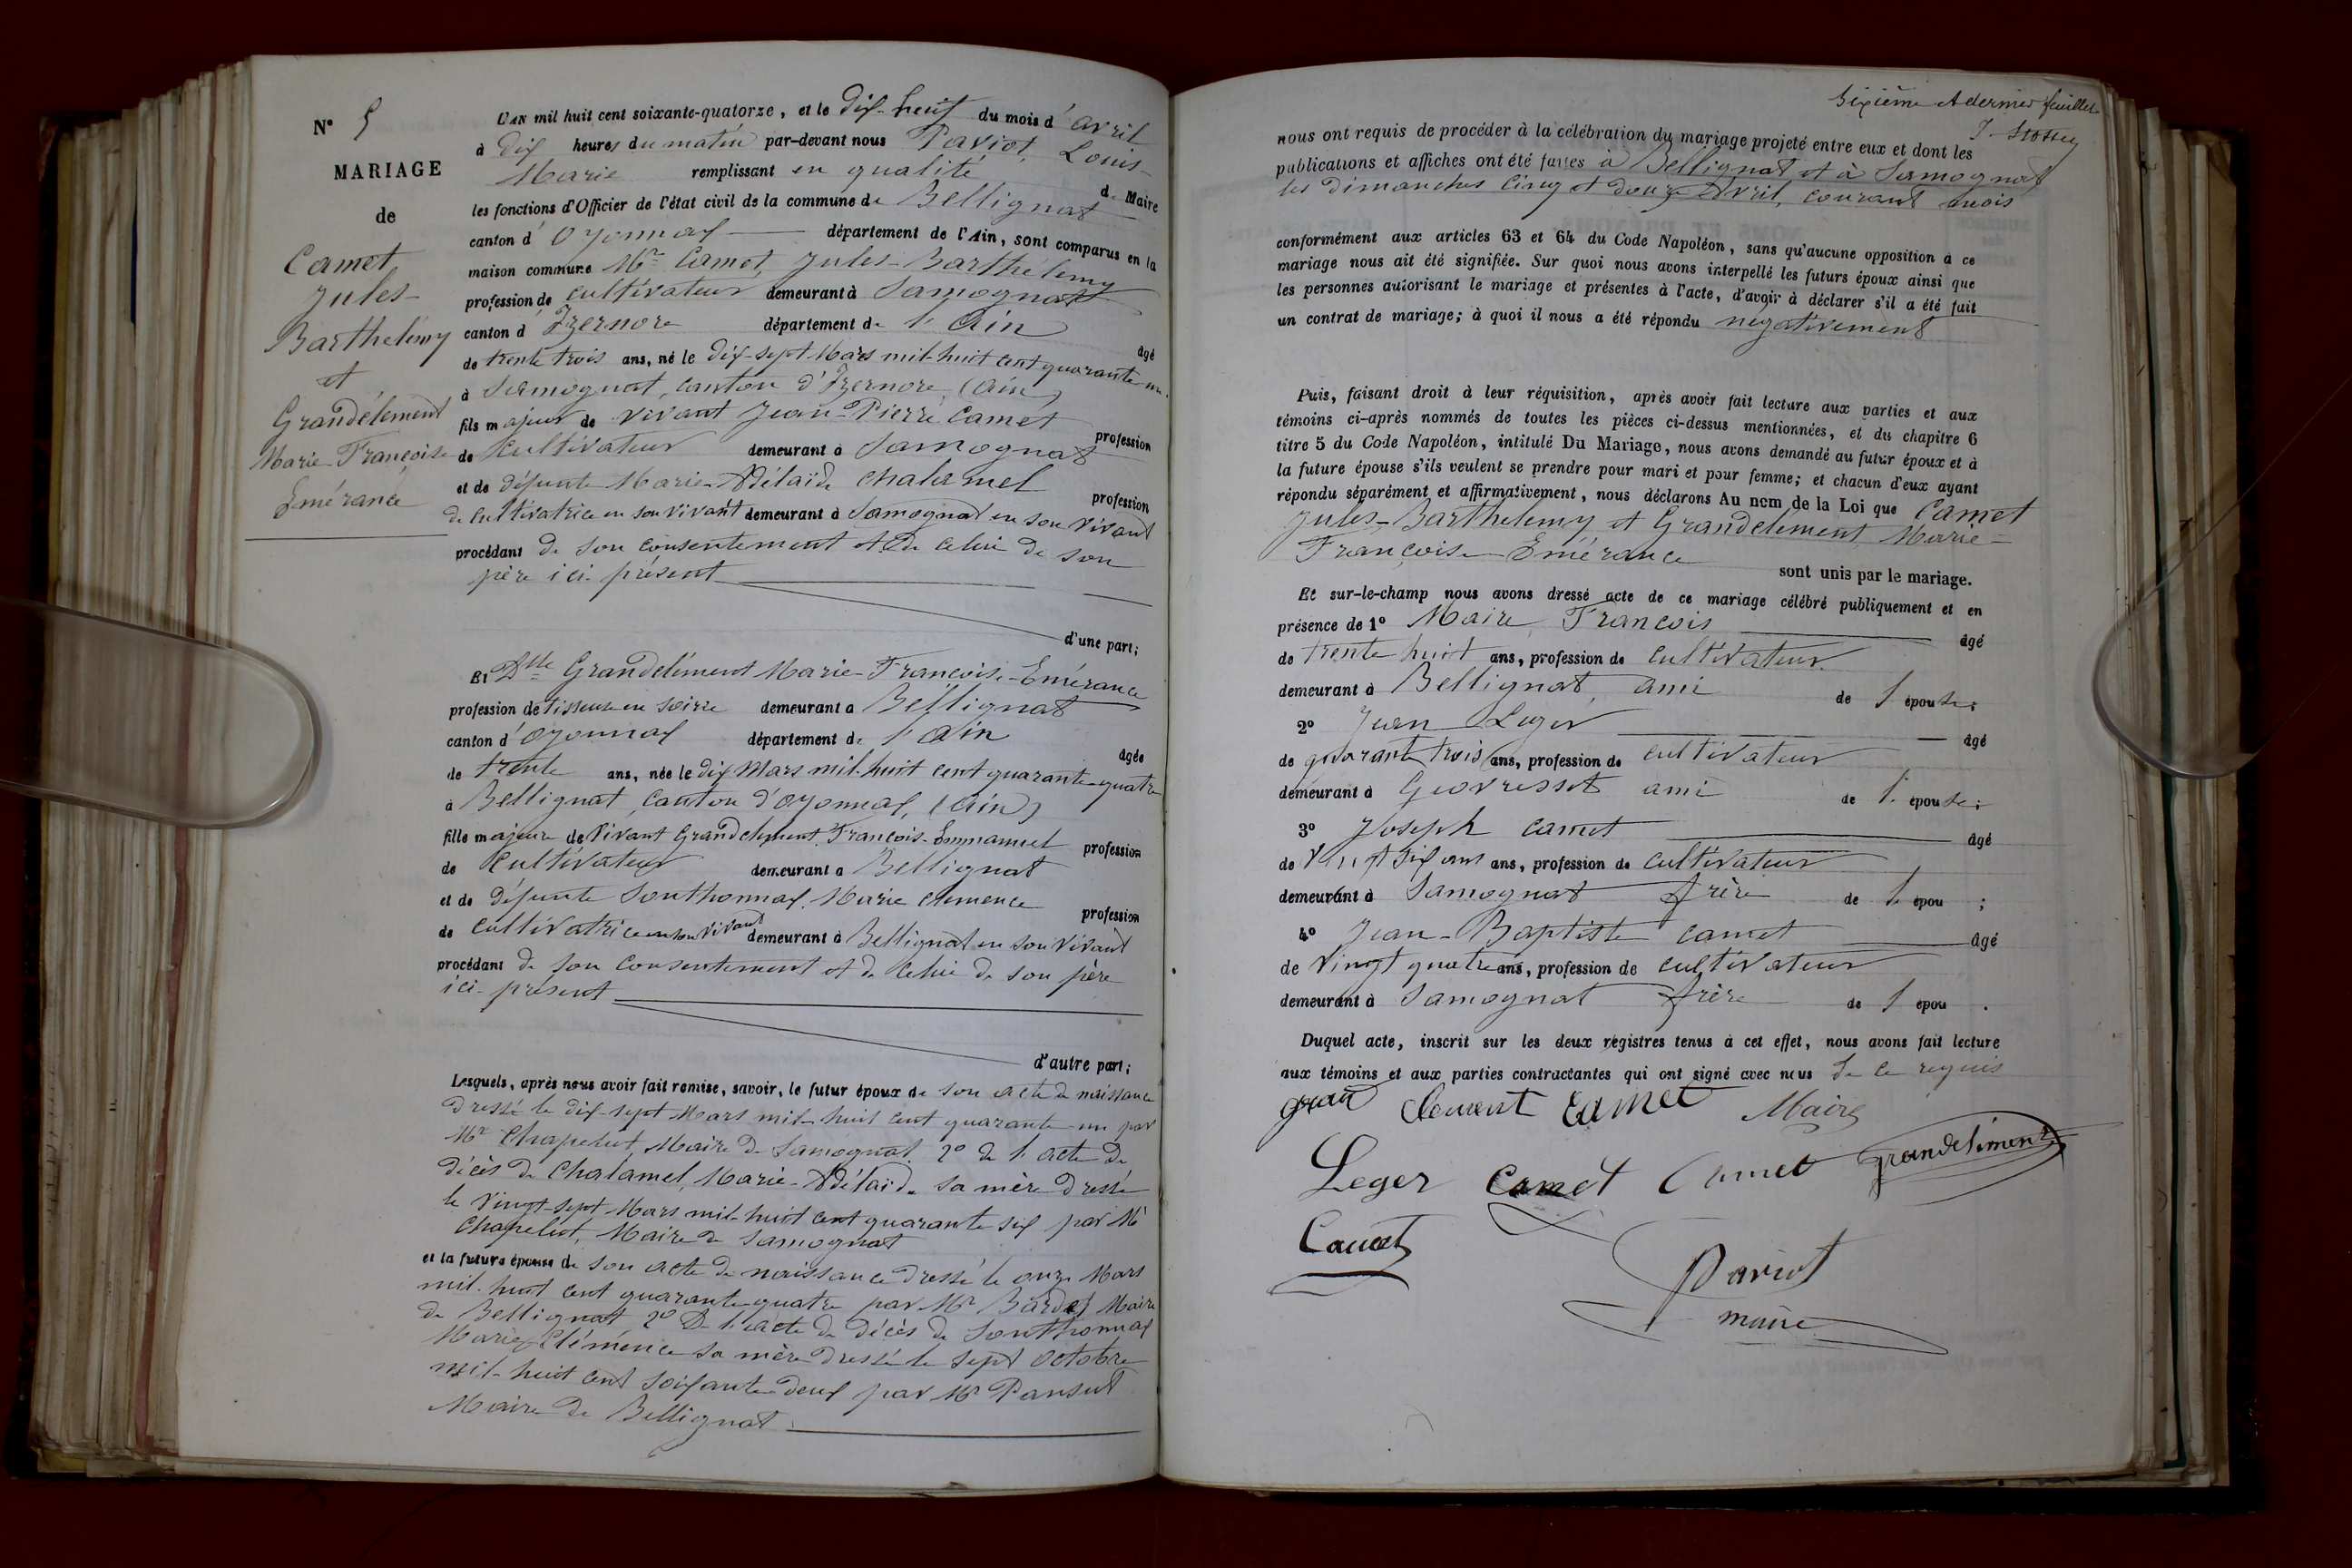 N° 5
MARIAGE
de
Camet
Jules-
Barthelémy
et
Grandclément
Marie-Françoise
Emérance
L'AN mil huit cent soixante-quatorze, et le dix-huit du mois d'avril
à dix heures du matin par-devant nous Paviot, Louis-
Marie remplissant en qualité de Maire
les fonctions d'Officier de l'état civil de la commune de Bellignat
canton d'Oyonnax département de l'Ain, sont comparus en la
maison commune Mr Camet, Jules-Barthélemy
profession de cultivateur demeurant à Samognat
canton d'Izernore département de l'Ain âgé
de trente trois ans, né le dix-sept Mars mil-huit cent quarante-un
à Samognat, canton d'Izernore, (Ain)
fils majeur de vivant Jean-Pierre Camet profession
de cultivateur demeurant à Samognat
et de défunte Marie-Adélaïde Chalamel profession
de cultivatrice en son vivant demeurant à Samognat en son vivant
procédant de son consentement et de celui de son
père ici présent
d'une part;
Et Dlle Grandclément Marie-Françoise-Emérance
profession de tisseuse en soirie demeurant à Bellignat
canton d'Oyonnax département de l'Ain âgée
de trente ans, née le dix Mars mil-huit cent quarante-quatre
à Bellignat, canton d'Oyonnax, (Ain)
fille majeure de vivant Grandclément, François-Emmanuel profession
de cultivateur demeurant à Bellignat
et de défunte Southonnax, Marie Clémence profession
de cultivatrice en son vivant demeurant à Bellignat en son vivant
procédant de son consentement et de celui de son père
ici-présent
d'autre part;
Lesquels, après nous avoir fait remise, savoir, le futur époux de son acte de naissance
dressé le dix-sept Mars mil-huit cent quarante-un par
Mr Chapelut, Maire de Samognat 2° de l'acte de
décès de Chalamel, Marie-Adélaïde sa mère dressé
le vingt-sept Mars mil-huit cent quarante six par Mr
Chapelut, Maire de Samognat
et la future épouse de son acte de naissance dressé le onze Mars
mil-huit cent quarante-quatre par Mr Bardet Maire
de Bellignat 2° De l'acte de décès de Southonnax
Marie Clémence sa mère dressé le sept octobre
mil-huit cent soixante-deux par Mr Pansut
Maire de Bellignat
Sixième et dernier feuillet
nous ont requis de procéder à la célébration du mariage projeté entre eux et dont les
publications et affiches ont été faites à Bellignat et à Samognat
les dimanches cinq et douze Avril, courant mois
conformément aux articles 63 et 64 du Code Napoléon, sans qu'aucune opposition à ce
mariage nous ait été signifiée. Sur quoi nous avons interpellé les futurs époux ainsi que
les personnes autorisant le mariage et présentes à l'acte, d'avoir à déclarer s'il a été fait
un contrat de mariage; à quoi il nous a été répondu négativement
Puis, faisant droit à leur réquisition, après avoir fait lecture aux parties et aux
témoins ci-après nommés de toutes les pièces ci-dessus mentionnées, et du chapitre 6
titre 5 du Code Napoléon, intitulé Du Mariage, nous avons demandé au futur époux et à
la future épouse s'ils veulent se prendre pour mari et pour femme; et chacun d'eux ayant
répondu séparément et affirmativement, nous déclarons Au nom de la Loi que Camet
Jules-Barthelemy et Grandclément Marie-
Françoise Emérance
sont unis par le mariage.
Et sur-le-champ nous avons dressé acte de ce mariage célébré publiquement et en
présence de 1° Maire, François âgé
de trente huit ans, profession de cultivateur
demeurant à Bellignat, ami de l'épouse;
2° Jean Leger âgé
de quarante trois ans, profession de cultivateur
demeurant à Geovresset ami de l'épouse;
3° Joseph Camet âgé
de vingt six ans ans, profession de cultivateur
demeurant à Samognat frère de l'épou ;
4° Jean-Baptiste Camet âgé
de vingt quatre ans, profession de cultivateur
demeurant à Samognat frère de l'épou .
Duquel acte, inscrit sur les deux registres tenus à cet effet, nous avons fait lecture
aux témoins et aux parties contractantes qui ont signé avec nous de ce requis
gran clement Camet Maire
Leger Camet Camet grandclément
Camet
Paviot
maire